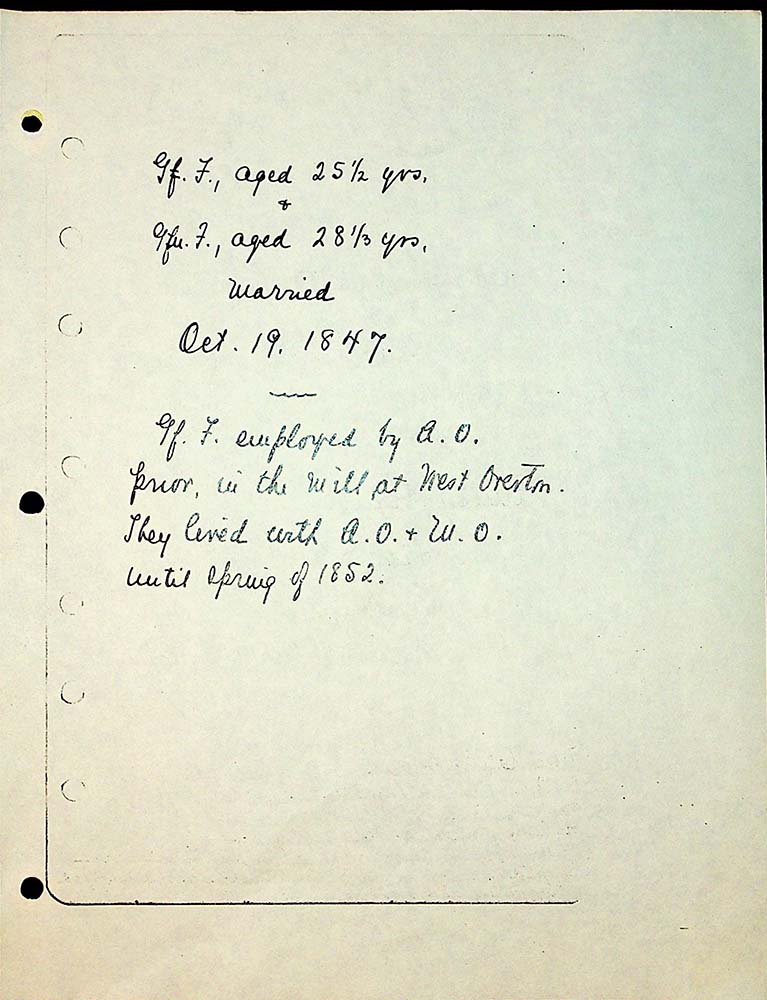 Gf. F., aged 25 1/2 yrs.
&
Gfm. F., aged 28 1/3 yrs.
Married
Oct. 19. 1847.
Gf. F. employed by A. O.
prior, in the mill at West Overton.
They lived with A. O. + M. O.
until spring of 1852.